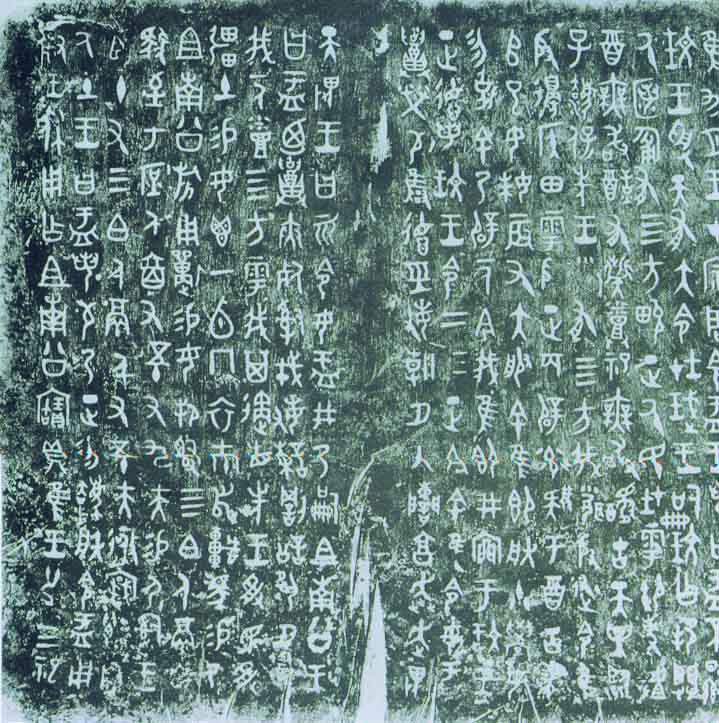 隹九月王才宗周令盂王若曰盂不顯
玟王受天有大令在珷王嗣玟乍邦闢
厥匿匍有四方畯正厥民在雩御事䖒
酉無敢酖有髭烝祀無敢擾古天異臨
子法保先王有四方我聞殷述令
隹殷邊侯田雩殷正百辟率肄于酉古喪
師巳女妹辰又大服余隹即朕小學女
勿克余乃辟一人今我隹即井廩于玟王
正德若玟王令二三正今余隹令女盂
召榮敬雍德經敏朝夕入諫享奔走畏
天畏王曰而令女盂井乃嗣且南公王
曰盂乃召夾死司戎敏諫罰訟夙夕召
我一人烝四方雩我其遹省先王受民受
疆土易女鬯一卣冂衣巿舄車馬易乃
且南公旂用遣易女邦司四白人鬲自
馭至于庶人六百又五十又九夫易尸司王
臣十又三白人鬲千又五十夫遷自
厥土王曰盂若敬乃正勿廢朕令盂用
對王休用乍且南公寶鼎隹王廿又三祀